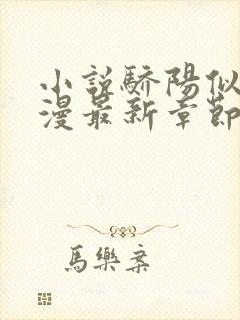 小說驕陽似
漫最新章節
馬樂案